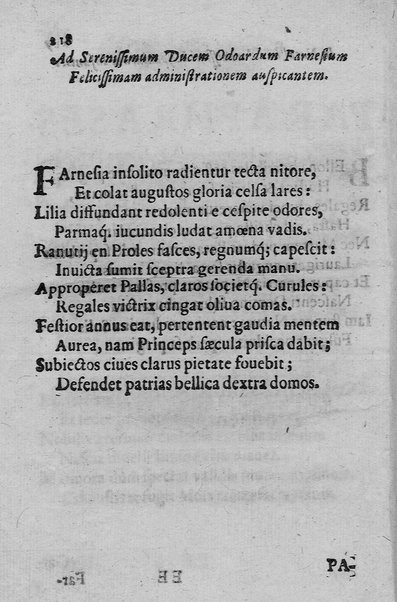 218
Ad Serenissimum Ducem Odoardum Farnesium
Felicissimam administrationem auspicantem.
FArnesia insolito radientur tecta nitore,
Et colat augustos gloria celsa lares:
Lilia diffundant redolenti e cespite odores,
Parmaq. iucundis ludat amœna vadis.
Ranutij en Proles fasces, regnumq; capescit:
Inuicta sumit sceptra gerenda manu.
Approperet Pallas, claros societq. Curules:
Regales victrix cingat oliua comas.
Festior annus eat, pertentent gaudia mentem
Aurea, nam Princeps sæcula prisca dabit;
Subiectos ciues clarus pietate fouebit;
Defendet patrias bellica dextra domos.
PA-